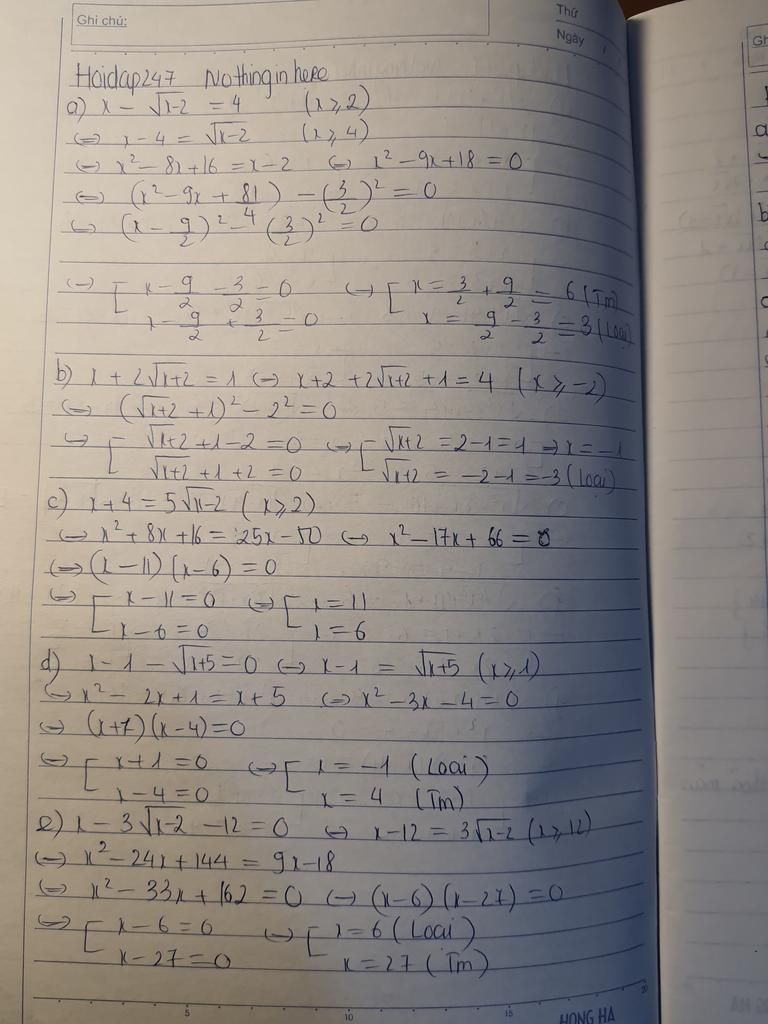 Ghi chú:
Thứ
Ngày
Hoidap247 Nothinginhere
a) x - √x-2 = 4 (x ≥ 2)
⇔ x - 4 = √x-2 (x ≥ 4)
⇔ x² - 8x + 16 = x - 2 ⇔ x² - 9x + 18 = 0
⇔ (x² - 9x + 81/4) - (3/2)² = 0
⇔ (x - 9/2)² - (3/2)² = 0
⇔ [ x - 9/2 - 3/2 = 0 ⇔ [ x = 3/2 + 9/2 = 6 (Tm)
x - 9/2 + 3/2 = 0 x = 9/2 - 3/2 = 3 (Loại)
b) x + 2√x+2 = 1 ⇔ x+2 + 2√x+2 + 1 = 4 (x ≥ -2)
⇔ (√x+2 + 1)² - 2² = 0
⇔ [ √x+2 + 1 - 2 = 0 ⇔ [ √x+2 = 2 - 1 = 1 ⇒ x = -1
√x+2 + 1 + 2 = 0 √x+2 = -2 - 1 = -3 (Loại)
c) x + 4 = 5√x-2 (x ≥ 2)
⇔ x² + 8x + 16 = 25x - 50 ⇔ x² - 17x + 66 = 0
⇔ (x - 11) (x - 6) = 0
⇔ [ x - 11 = 0 ⇔ [ x = 11
x - 6 = 0 x = 6
d) x - 1 - √x+5 = 0 ⇔ x - 1 = √x+5 (x ≥ 1)
⇔ x² - 2x + 1 = x + 5 ⇔ x² - 3x - 4 = 0
⇔ (x+1) (x-4) = 0
⇔ [ x + 1 = 0 ⇔ [ x = -1 (Loại)
x - 4 = 0 x = 4 (Tm)
e) x - 3√x-2 - 12 = 0 ⇔ x - 12 = 3√x-2 (x ≥ 12)
⇔ x² - 24x + 144 = 9x - 18
⇔ x² - 33x + 162 = 0 ⇔ (x-6) (x-27) = 0
⇔ [ x - 6 = 0 ⇔ [ x = 6 (Loại)
x - 27 = 0 x = 27 (Tm)
5 10 15 20
HONG HA